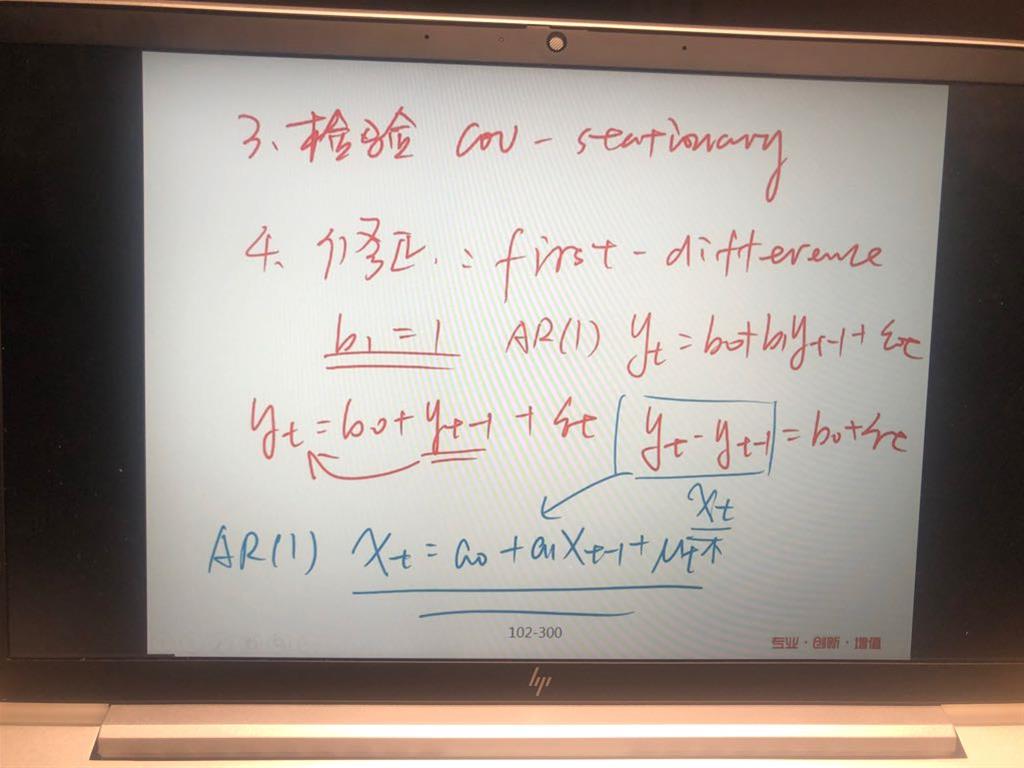 3、检验 cov - stationary
4、修正: first - difference
b₁ = 1 AR(1) yₜ = b₀ + b₁yₜ₋₁ + εₜ
yₜ = b₀ + yₜ₋₁ + εₜ yₜ - yₜ₋₁ = b₀ + εₜ
xₜ
AR(1) xₜ = a₀ + a₁xₜ₋₁ + μₜ
102-300
专业·创新·增值
hp